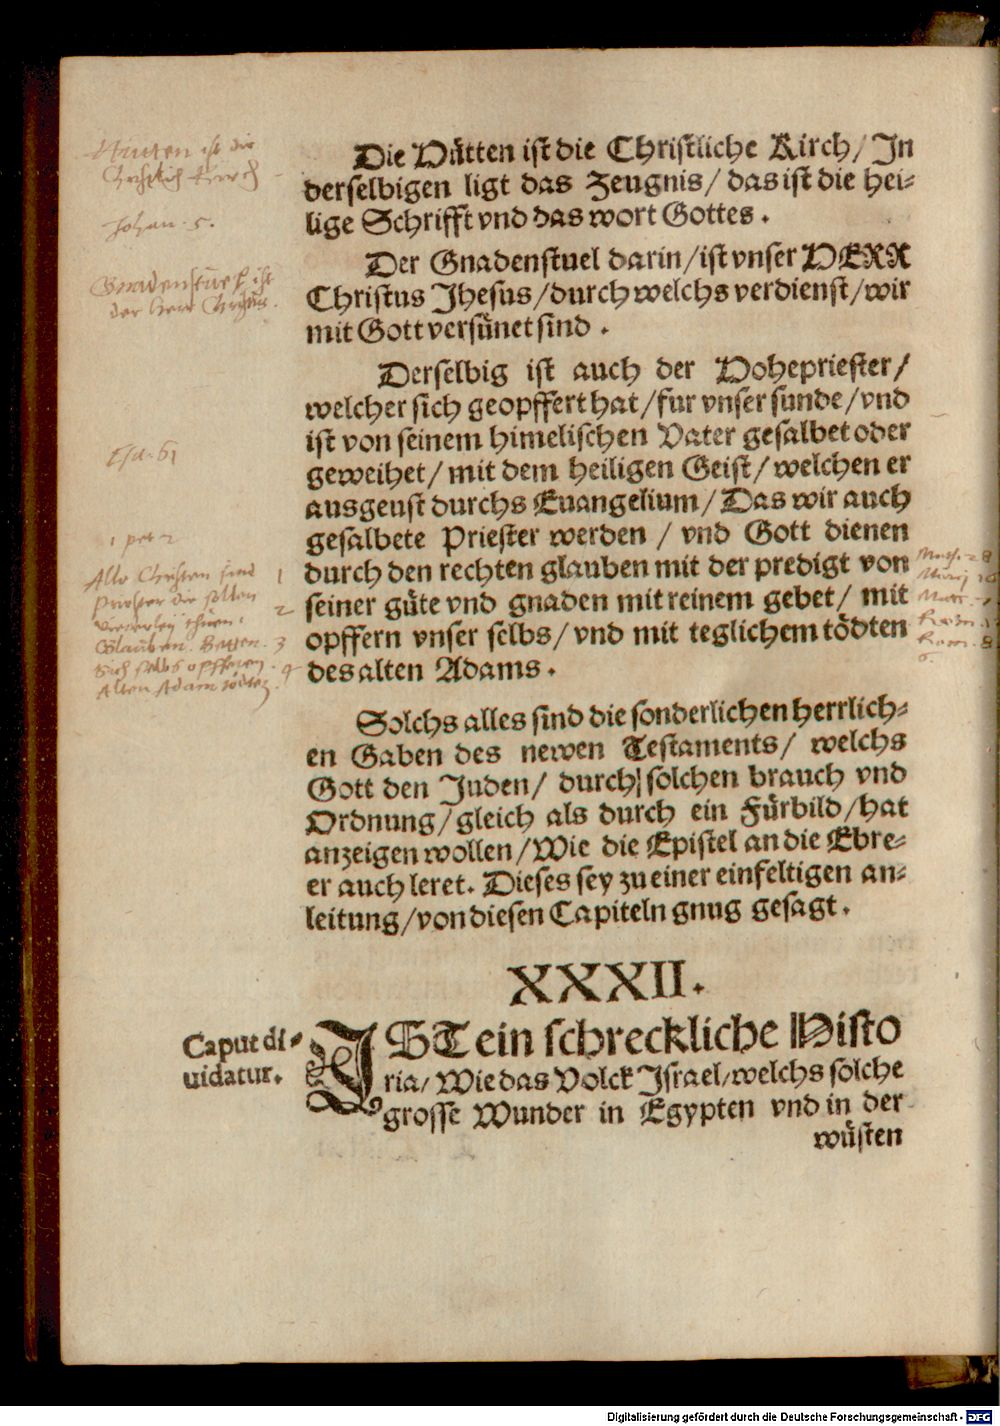 Die Hütten ist die Christliche Kirch/ In
derselbigen ligt das Zeugnis/ das ist die hei-
lige Schrifft vnd das wort Gottes.
Der Gnadenstuel darin/ ist vnser HERR
Christus Jhesus/ durch welchs verdienst/ wir
mit Gott versünet sind.
Derselbig ist auch der Hohepriester/
welcher sich geopffert hat/ fur vnser sunde/ vnd
ist von seinem himelischen Vater gesalbet oder
geweihet/ mit dem heiligen Geist/ welchen er
ausgeust durchs Euangelium/ Das wir auch
gesalbete Priester werden / vnd Gott dienen
durch den rechten glauben mit der predigt von
seiner güte vnd gnaden mit reinem gebet/ mit
opffern vnser selbs/ vnd mit teglichem tödten
des alten Adams.
Solchs alles sind die sonderlichen herrlich-
en Gaben des newen Testaments/ welchs
Gott den Juden/ durch solchen brauch vnd
Ordnung/ gleich als durch ein Fürbild/ hat
anzeigen wollen/ Wie die Epistel an die Ebre-
er auch leret. Dieses sey zu einer einfeltigen an-
leitung/ von diesen Capiteln gnug gesagt.
XXXII.
Caput di-
uidatur.
IST ein schreckliche Histo
ria/ Wie das Volck Israel/ welchs solche
grosse Wunder in Egypten vnd in der
wüsten
Hutten ist die
Christlich Kirch
Johan. 5.
Gnadenstuel ist
der Herr Christus.
Esa. 61
1 pet 2
Alle Christen sind 1
Priester die sollen 2
viererley thuen.
Glauben. Betten. 3
Sich selbs opfferen. 4
Alten Adam tödten.
Digitalisierung gefördert durch die Deutsche Forschungsgemeinschaft - DFG